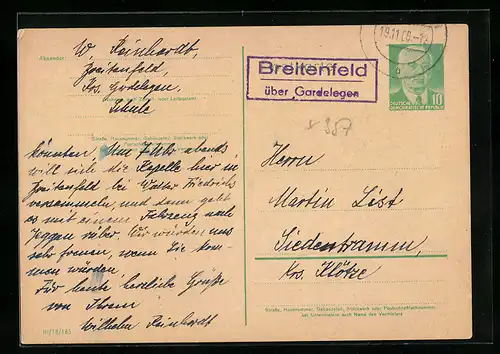 Absender:
W. Reinhardt,
Breitenfeld,
Krs. Gardelegen
Schule
Straße, Hausnummer, Gebäudeteil, Stockwerk oder
könnten. Um 7 Uhr abends
will sich die Kapelle hier in
Breitenfeld bei Walter Friedrichs
versammeln, und dann geht
es mit einem Fahrzeug nach
Jeggen rüber. Wir würden uns
sehr freuen, wenn Sie kom-
men würden.
Für heute herzliche Grüße
von Ihrem
Wilhelm Reinhardt
III/18/185
Breitenfeld
über Gardelegen
19.11.60.-12
DEUTSCHE
DEMOKRATISCHE REPUBLIK
10
x 357
Herrn
Martin List
Siedentramm,
Krs. Klötze
Straße, Hausnummer, Gebäudeteil, Stockwerk oder Postschließfachnummer,
bei Untermietern auch Name des Vermieters